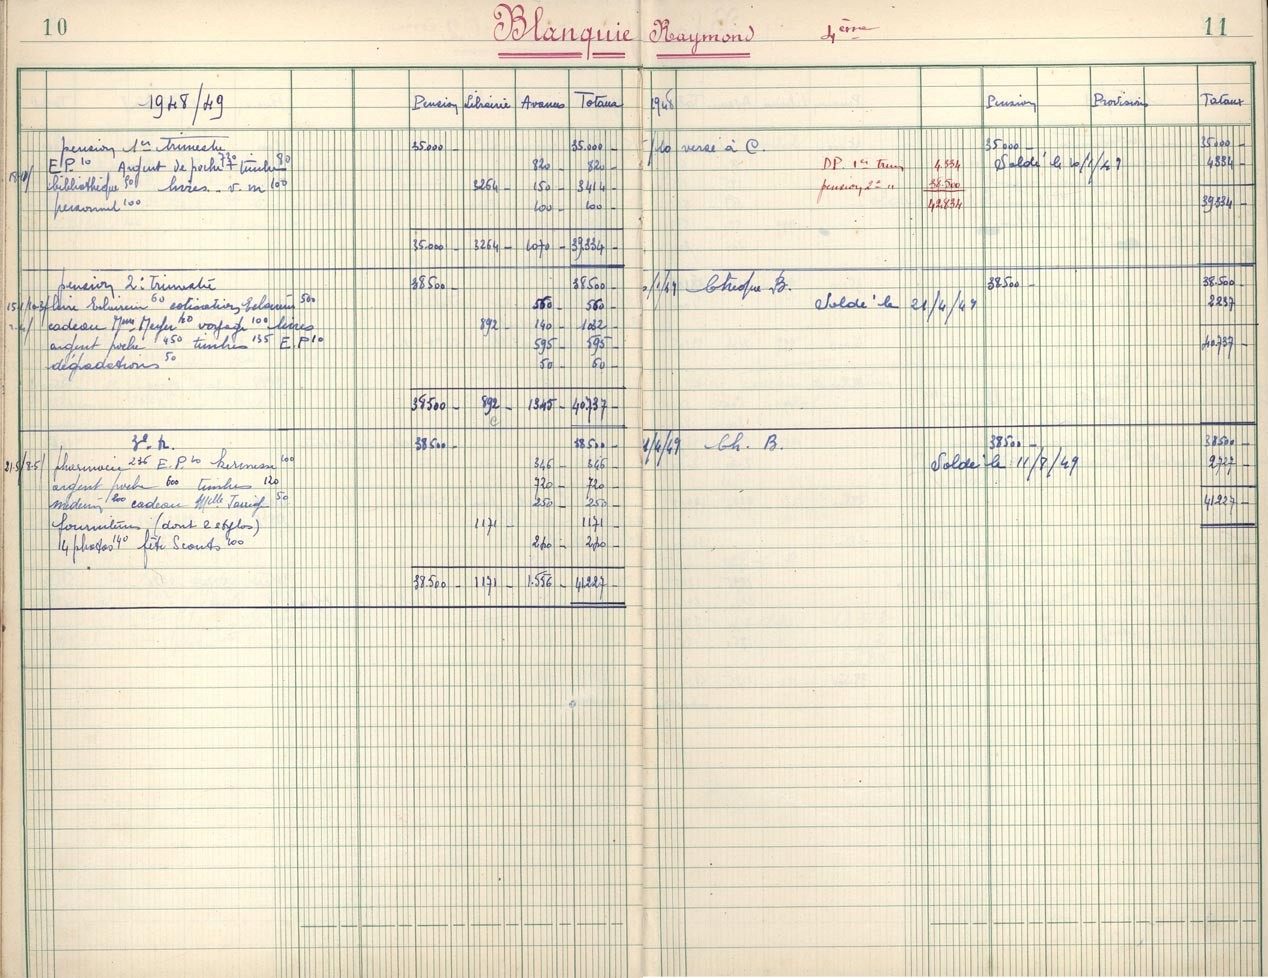 10 Blanquie Raymond 4ème 11
1948/49 Pension Librairie Avances Totaux
pension 1er trimestre 35.000 - 35.000 -
E.P. 10 Argent de poche 730 timbres 80 820 - 820 -
bibliothèque 50 livres v.m 100 3264 - 150 - 3414 -
personnel 100 100 - 100 -
35.000 - 3264 - 1070 - 39334 -
pension 2e trimestre 38500 - 38500 -
560 - 560 -
cadeau Mme Meyer voyage 100 livres 892 - 140 - 1032 -
argent poche 450 timbres 135 E.P 10 595 - 595 -
dégradations 50 50 - 50 -
38500 - 892 - 1345 - 40737 -
3e tr. 38500 - 38500 -
pharmacie 236 E.P. 10 kermesse 100 346 - 346 -
argent poche 600 timbres 120 720 - 720 -
médecin 200 cadeau Melle 50 250 - 250 -
fournitures (dont 2 stylos) 1171 - 1171 -
14 photos 140 fête Scouts 100 240 - 240 -
38.500 - 1171 - 1.556 - 41227 -
1948 Pension Provision Totaux
versé à C. 35000 - 35000 -
DP. 1er Trim 4.334 Soldé le 10/1/49 4334 -
pension 2e " 38.500 39334 -
42834
/1/49 Chèque B. 38500 - 38.500 -
Soldé le 21/4/49 2237 -
40.737 -
/4/49 Ch. B. 38500 - 38500 -
Soldé le 11/8/49 2727 -
41227 -